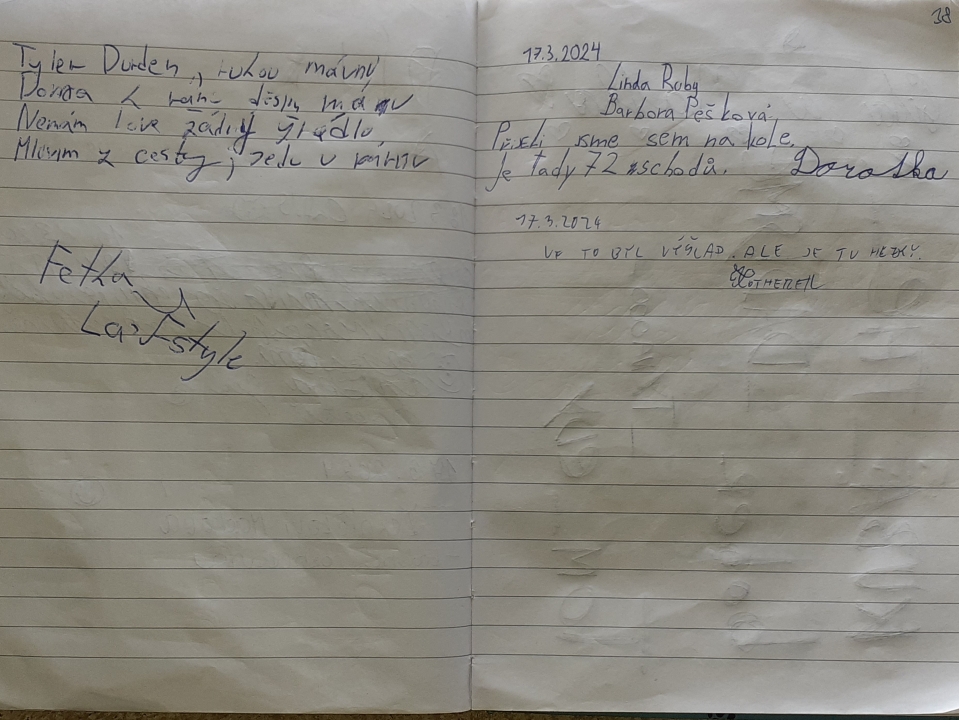 Tyler Durden, rukou mávnu
Domra k ránu děsny mánu
Nemám love žádný vrádlo
Mluvim z cesty, jedu v kárnu
Fetka
Lajfstyle
38
17.3.2024
Linda Roby
Barbora Pěšková
Přijeli jsme sem na kole.
Je tady 72 schodů. Dorotka
17.3.2024
VF TO BYL VÝŠLAP. ALE JE TU HEZKÝ.